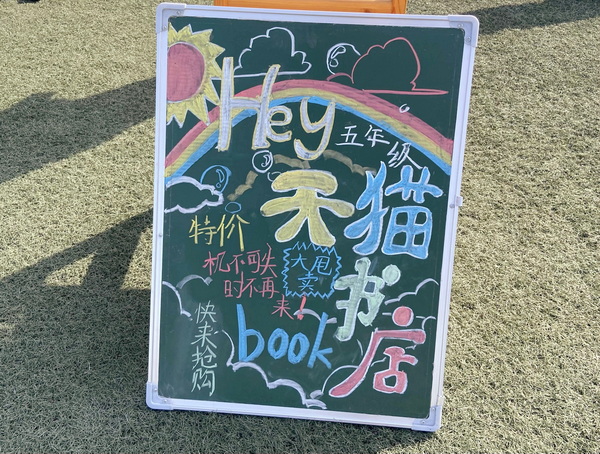 Hey
五年级
天猫
书店
特价
机不可失
时不再
来!
大甩
卖
book
快来抢购